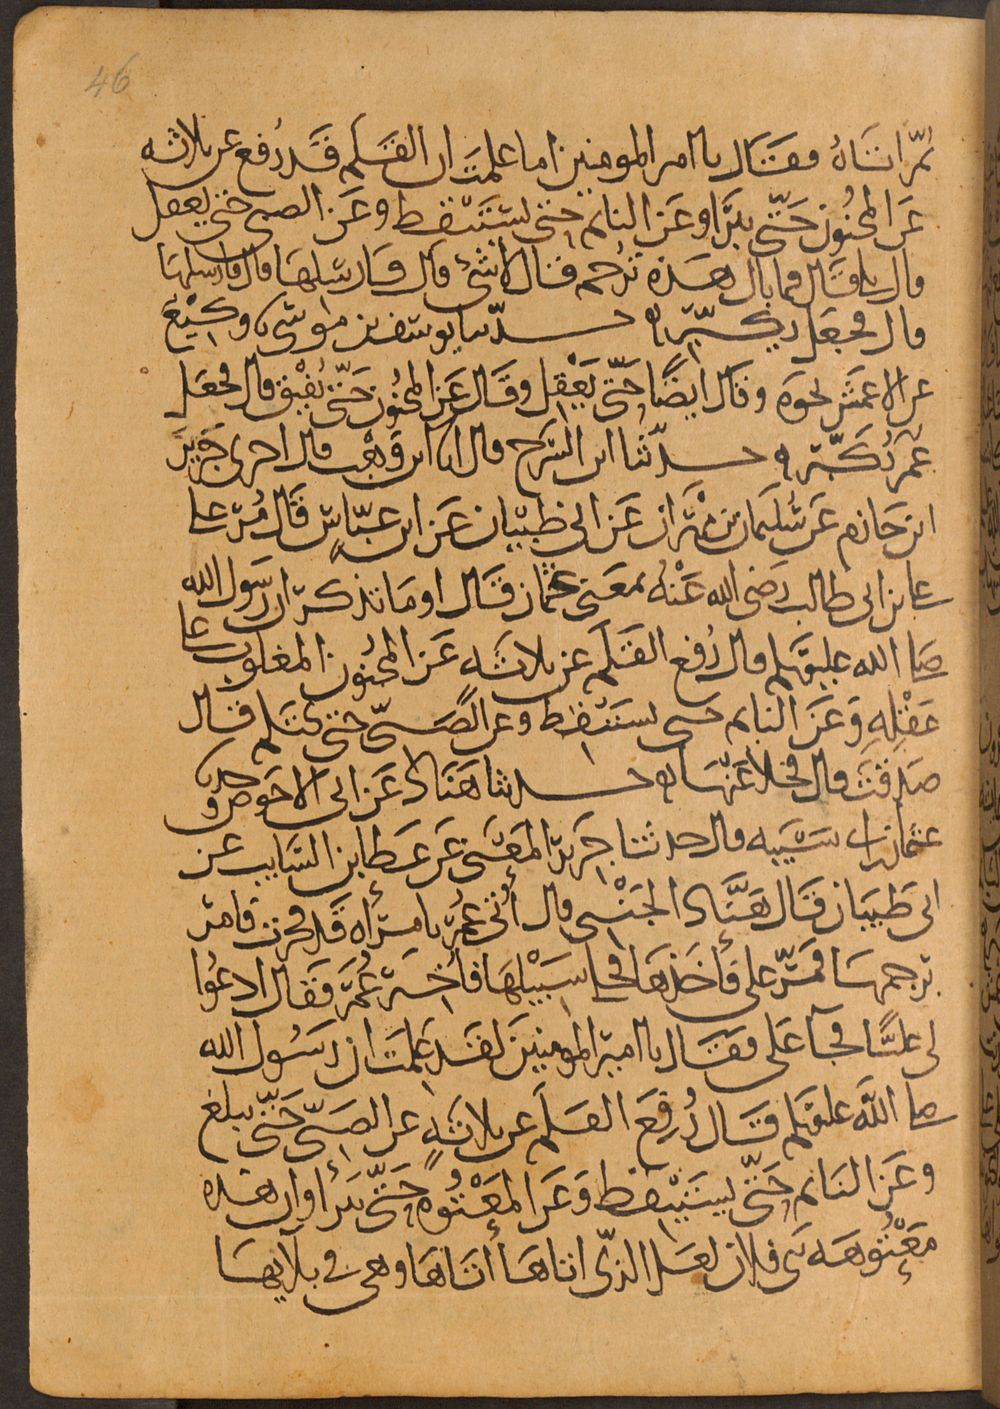 46
ثمّ اتَاهُ فقَال يا امير المومنين اما علمتَ ان القَلم قَد رُفع عن ثلاثه
عَن المجنُون حَتّى يبرَا وعَن النايم حتى يستَيْقظ وعَن الصبي حتى يعقل
قال بلى قَال فما بال هَذه تُرجم قال لا شئ قال فارسِلهَا قال فارسلهَا
قال فجعَل يكبّره حدّثنا يوسُف بن موسَى نا وكيْع
عن الاعمَش نحوَه وقَال ايضًا حتّى يَعْقِل وقَال عَن المجنُون حَتّى يُفيْق قال فجعَل
عُمر يُكَبّر ه حدّثنا ابن السّرح قال انا ابن وَهْب قال اخبرني جَرير
ابن حَازم عَن سُليمَان بن مهْرَان عَن ابي ظبيَان عَن ابن عبّاسٍ قَال مُرّ على
علي بن ابي طالب رَضي الله عَنْهُ بمعنَى عثمَان قَال اومَا تذكر انّ رَسُول الله
صلى الله عليه وسلم قال رُفع القَلَم عن ثلاثَه عَن المجنُون المغلوب على
عَقْلِهِ وَعَن النايم حتى يستَيْقظ وعن الصَبيّ حتى يحتَلم قال
صَدقْتَ قال فخلا عَنْهَا ه حدثنا هَنَاد عَن ابي الاحوَص ح ونا
عثمان بن ابي شَيْبَه قال حدثنا جَرير المَعْنَى عَن عَطا بن السَايب عَن
ابي ظَبيَان قَال هَنَّاد الجَنْبي قال أُتي عُمَر بامرَأه قَد فجرت فامَر
برجمهَا فمَرّ علي فأخذهَا فخلى سَبيْلهَا فأُخبر عُمَر فقَال ادعُوا
لي عليًّا فجآ عَلي فقَال يا امير المومنيَن لقَد عَلمتَ ان رَسُول الله
صلى الله عليه وسلم قَال رُفِعَ القَلَم عن ثلاثةٍ عن الصَبيّ حَتّى يبلغ
وعَن النَايم حَتّى يستَيْقظ وَعَن المَعْتُوه حَتّى يَبرأ وان هَذه
مَعْتُوهَه بَني فلان لعَل الذّي اتاهَا أتَاهَا وهي في بلايهَا